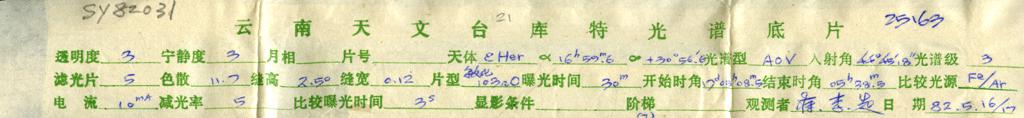 SY82031
云南天文台库特光谱底片 21 25163
透明度 3 宁静度 3 月相 片号 天体 ε Her α 16ʰ59ᵐ.6 +30°56'.6 光谱型 A0V 入射角 光谱级 3
滤光片 5 色散 11.7 缝高 2.50 缝宽 0.12 片型 103aO 曝光时间 30ᵐ 开始时角 结束时角 比较光源 Fe/Ar
电流 10mA 减光率 5 比较曝光时间 3ˢ 显影条件 阶梯 观测者 日期 82.5.16/17